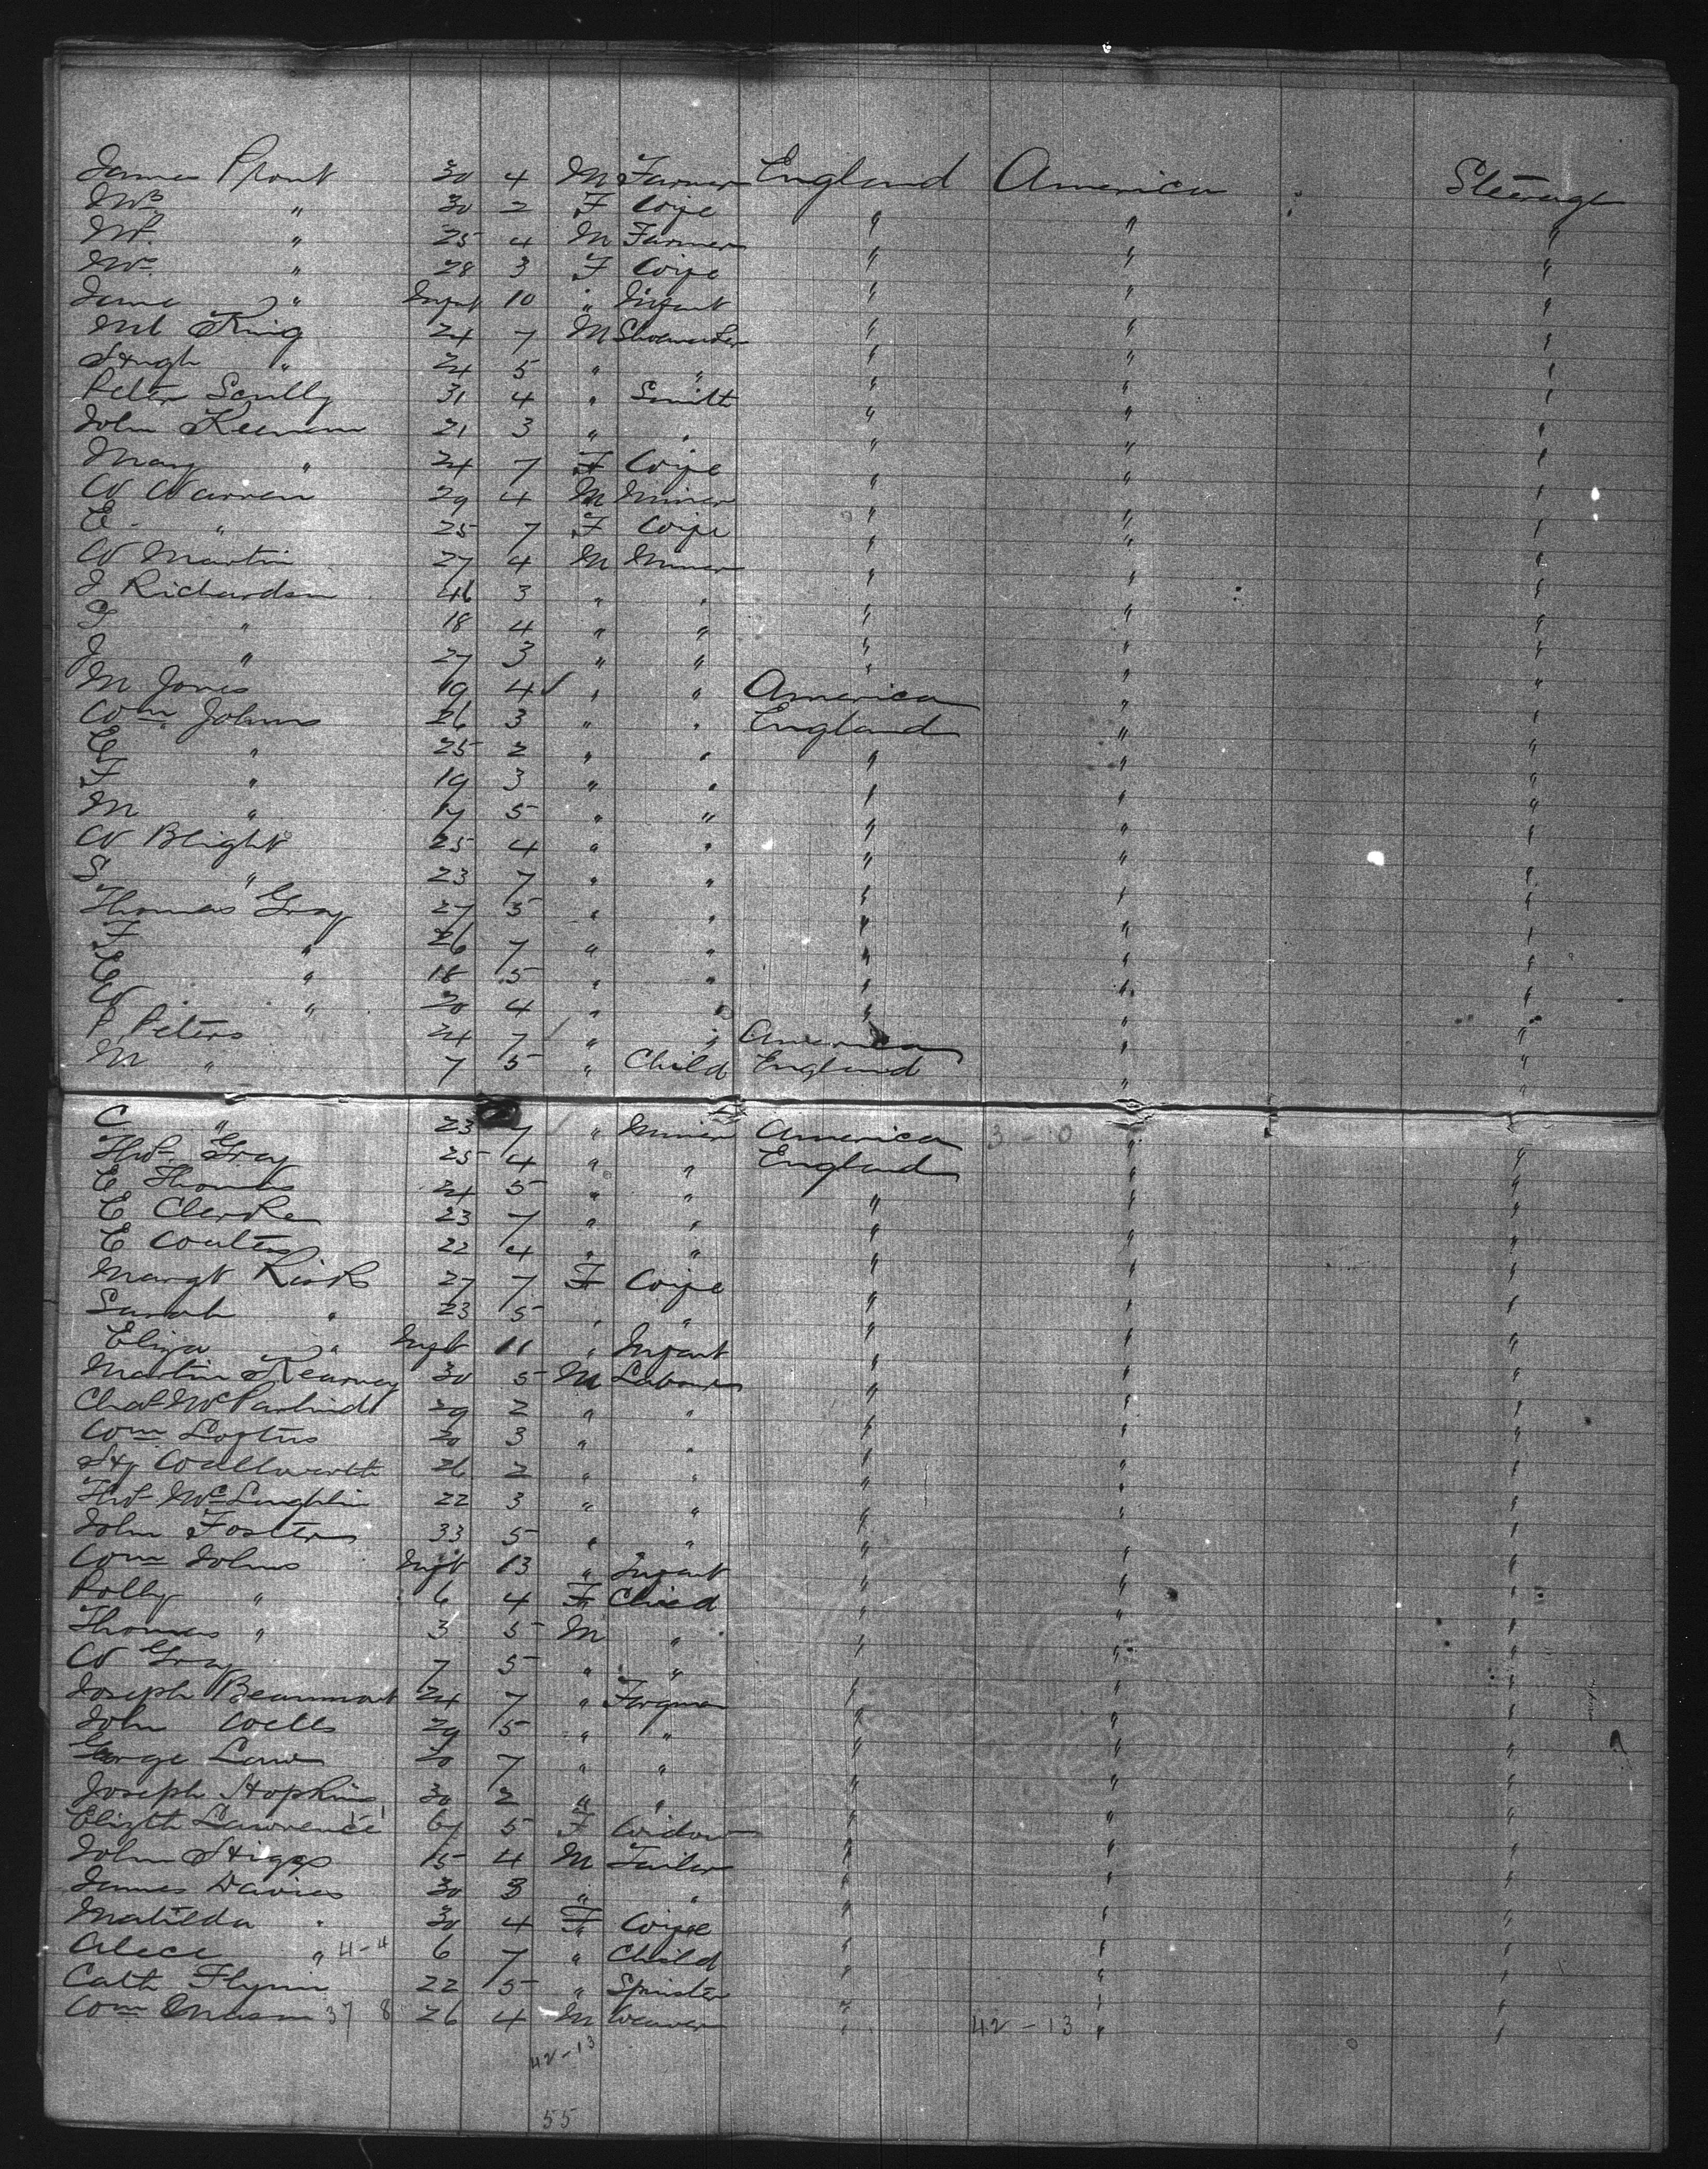 James Prout 30 4 M Farmer England America Steerage
Mrs " 30 2 F Wife " " "
Mr. " 25 4 M Farmer " " "
Mrs " 28 3 F Wife " " "
Jane " Inft 10 " Infant " " "
Ml King 24 7 M Shoemaker " " "
Hugh " 24 5 " " " " "
Peter Scully 31 4 " Smith " " "
John Keenan 21 3 " " " " "
Mary " 24 7 F Wife " " "
W Warren 29 4 M Miner " " "
E " 25 7 F Wife " " "
W Martin 27 4 M Miner " " "
J Richardson 46 3 " " " " "
" 18 4 " " " " "
J " 27 3 " " " " "
M Jones 19 4 ✓ " " America " "
Wm Johns 26 3 " " England " "
E " 25 2 " " " " "
F " 19 3 " " " " "
M " 17 5 " " " " "
W Blight 25 4 " " " " "
S " 23 7 " " " " "
Thomas Gray 27 5 " " " " "
F " 26 7 " " " " "
E " 18 5 " " " " "
W " 20 4 " " " " "
P Peters 24 7 " " America " "
M " 7 5 " Child England " "
C " 23 7 " Miner America 3-10 " "
Thos Gray 25 4 " " England " "
E Thomas 24 5 " " " " "
E Clerke 23 7 " " " " "
E Coulters 22 4 " " " " "
Margt Risk 27 7 F Wife " " "
Sarah " 23 5 " " " " "
Eliza " Inft 11 " Infant " " "
Martin Kearney 30 5 M Labourer " " "
Chas McParlind 29 2 " " " " "
Wm Loftus 20 3 " " " " "
Hy Wallworth 26 2 " " " " "
Thos McLoughlin 22 3 " " " " "
John Foster 33 5 " " " " "
Wm Johns Inft 13 " Infant " " "
Polly " 6 4 F Child " " "
Thomas " 3 5 M " " " "
W Gray 7 5 " " " " "
Joseph Beaumont 24 7 " Forgeman " " "
John Wells 29 5 " " " " "
George Law 20 7 " " " " "
Joseph Hopkins 30 2 " " " " "
Elizth Lawrence 67 5 F Widow " " "
John Higgs 15 4 M Tailor " " "
James Davies 30 3 " " " " "
Matilda " 30 4 F Wife " " "
Alice " 4-4 6 7 " Child " " "
Cath Flynn 22 5 " Spinster " " "
Wm Mason 37 8 26 4 M Weaver " 42-13 " "
42-13
55